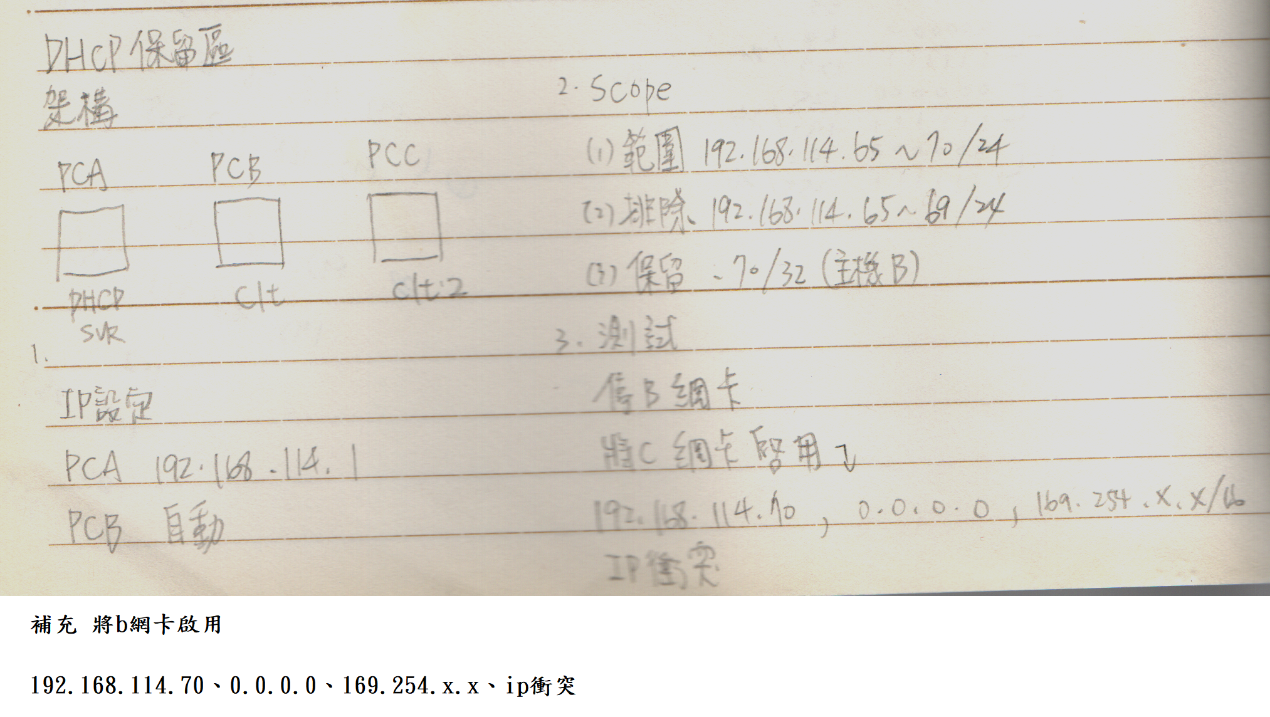 DHCP保留區
架構
PCA PCB PCC
DHCP SVR clt clt2
1.
IP設定
PCA 192.168.114.1
PCB 自動
2. Scope
(1) 範圍 192.168.114.65~70/24
(2) 排除、192.168.114.65~69/24
(3) 保留 ~70/32 (主機B)
3. 測試
停B網卡
將C網卡啓用
192.168.114.70, 0.0.0.0, 169.254.x.x/16
IP衝突
補充 將b網卡啟用
192.168.114.70、0.0.0.0、169.254.x.x、ip衝突